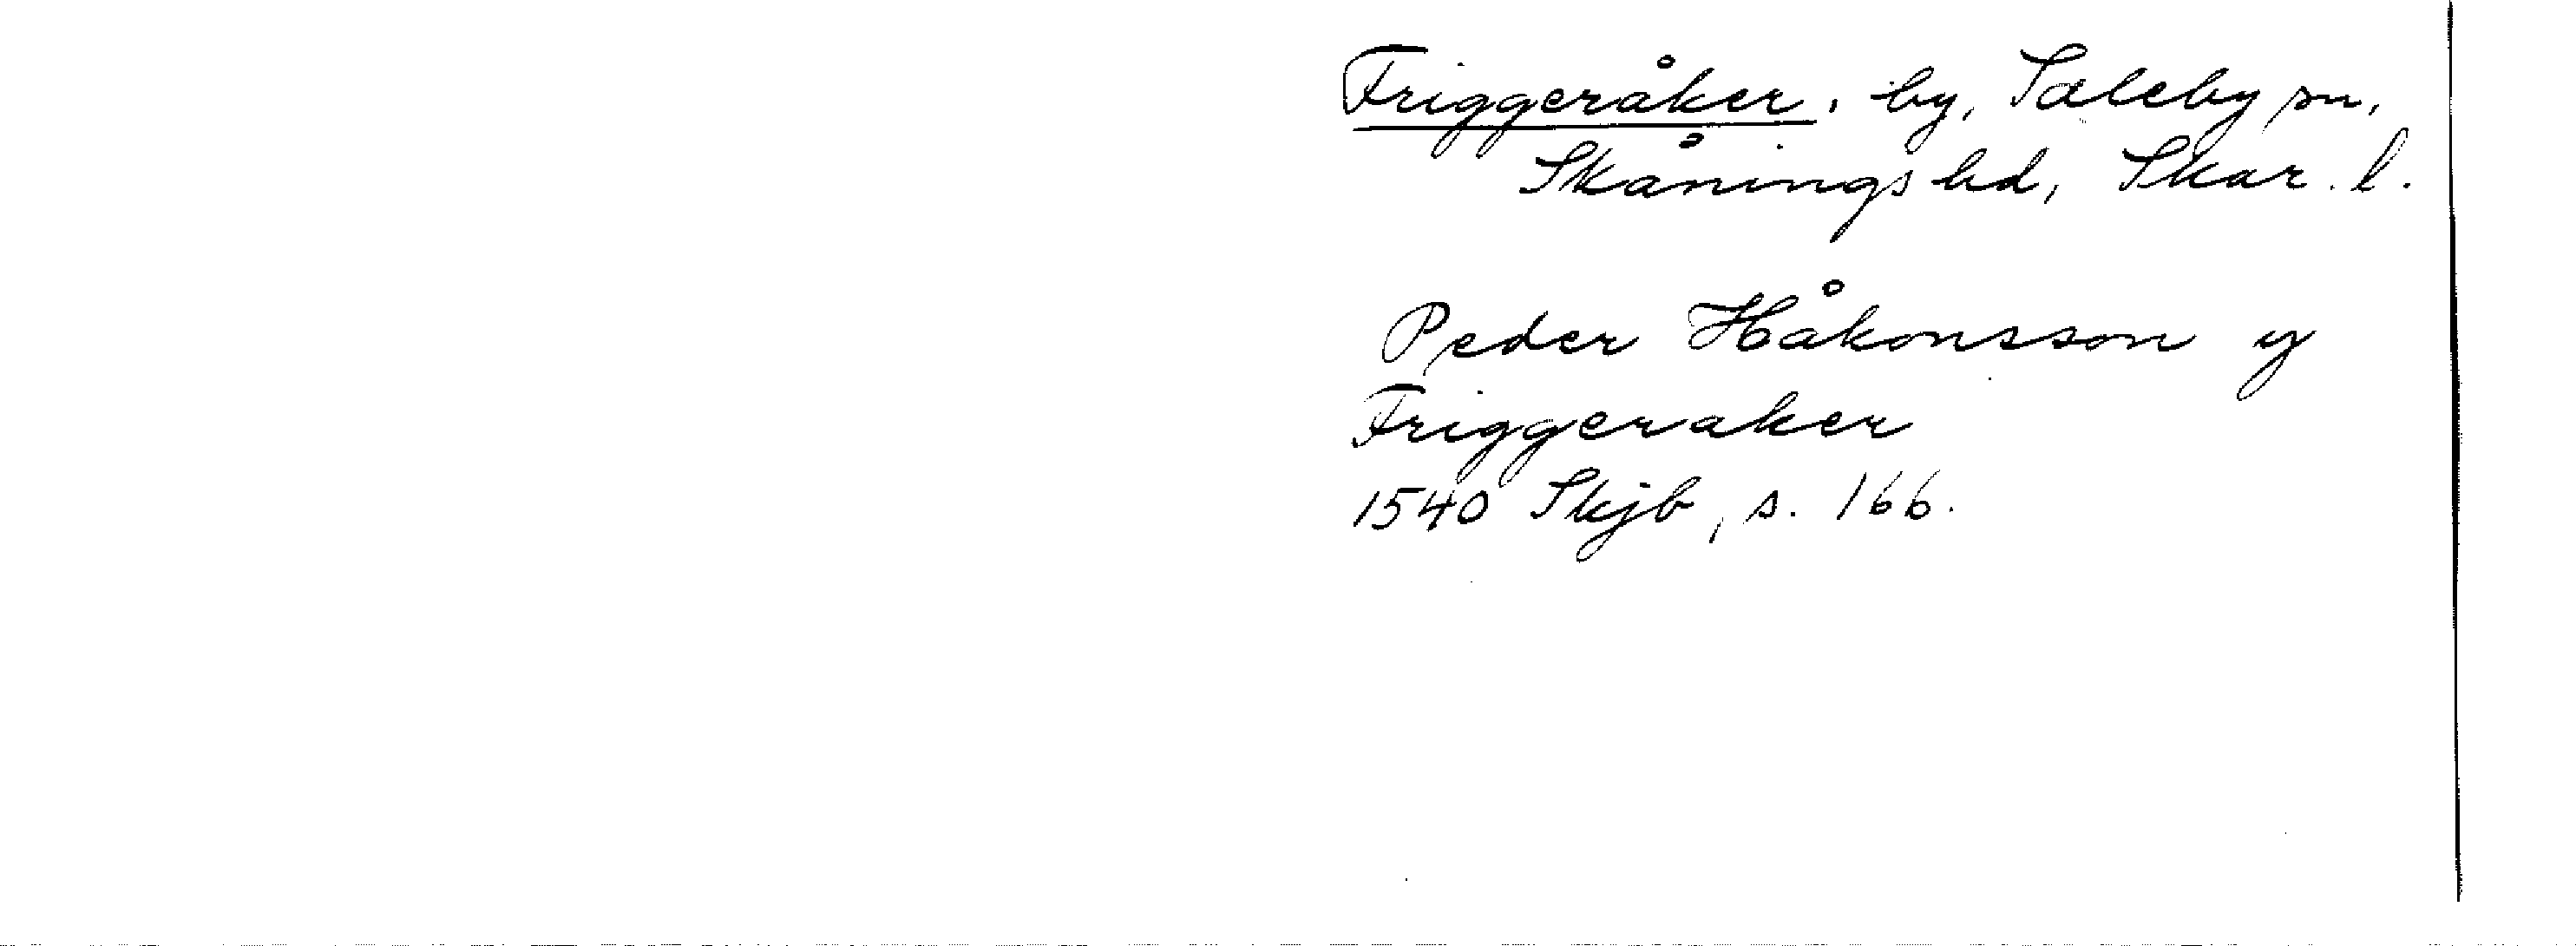 Friggeråker, by, Saleby sn,
Skånings hd, Skar. l.
Peder Håkonsson y
Friggeraker
1540 Skjb, s. 166.